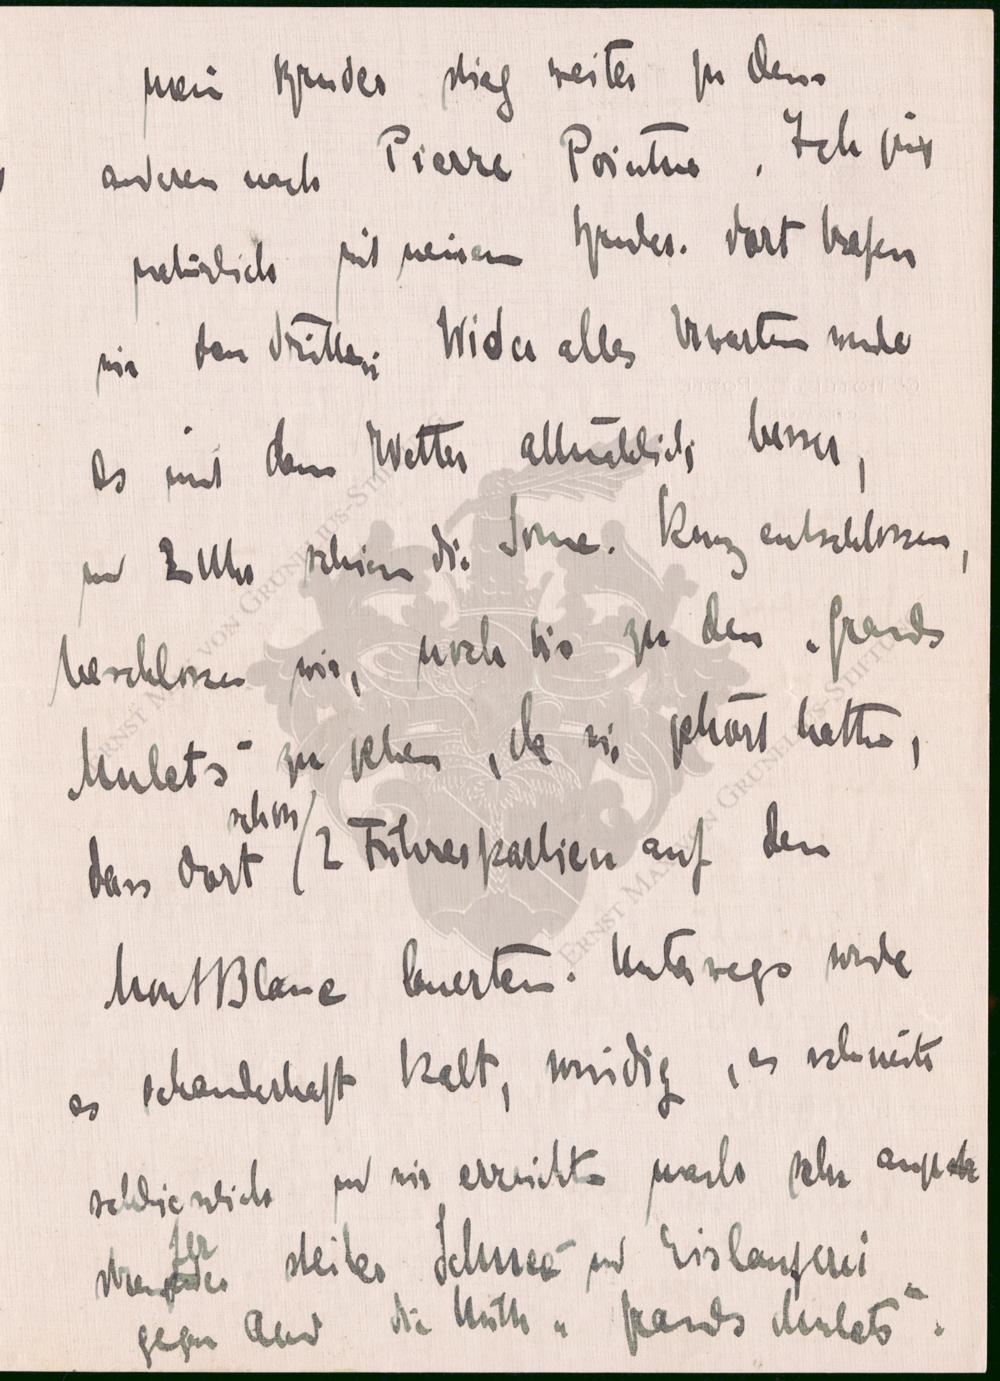 mein Bruder stieg weiter zu dem
anderen nach Pierre Pointue. Ich ging
natürlich mit meinem Bruder. Dort trafen
wir den Dritten. Wider alles Erwarten wurde
es mit dem Wetter allmählich besser,
um 2 Uhr schien die Sonne. Kurz entschlossen,
beschlossen wir, noch bis zu den „grands
Mulets" zu gehen, da wir gehört hatten,
dass dort schon 2 Führerpartien auf den
Mont Blanc lauerten. Unterwegs wurde
es schauderhaft kalt, windig, es schneite
schliesslich und wir erreichten nach sehr
steiler Schnee- und Eislauferei
gegen Abend die Hütte „grands Mulets".
ERNST MAX VON GRUNELIUS-STIFTUNG
ERNST MAX VON GRUNELIUS-STIFTUNG